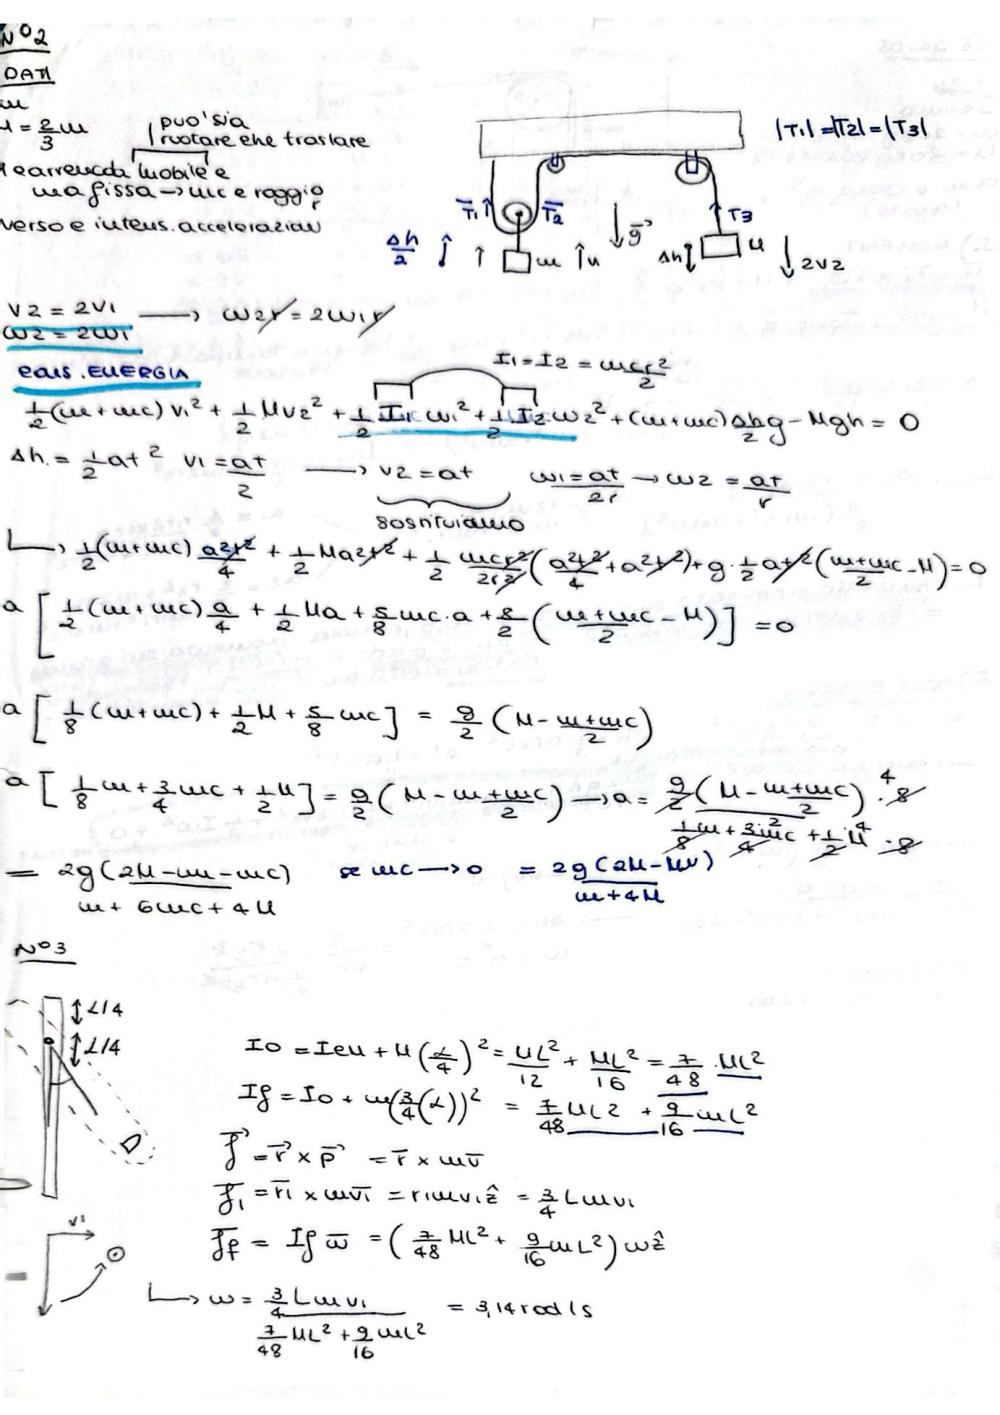 N°2
DATI
m
M = 2/3 m
può sia
ruotare che traslare
|T1| = |T2| = |T3|
carrucola mobile e
una fissa → mc e raggio r
verso e intens. accelerazioni
T1 T2 g T3
Δh/2 m M Δh M 2v2
v2 = 2v1 → ω2r = 2ω1r
ω2 = 2ω1
I1 = I2 = mcr²/2
cons. ENERGIA
1/2(m+mc)v1² + 1/2 Mv2² + 1/2 I1ω1² + 1/2 I2ω2² + (m+mc)Δh/2 g - Mgh = 0
Δh = 1/2 at² v1 = at/2 → v2 = at ω1 = at/2r → ω2 = at/r
sostituiamo
↳ 1/2(m+mc) a²t²/4 + 1/2 Ma²t² + 1/2 mcr²/2r² (a²t²/4 + a²t²) + g·1/2 at² (m+mc/2 - M) = 0
a [ 1/2(m+mc) a/4 + 1/2 Ma + 5/8 mc·a + g/2 (m+mc/2 - M) ] = 0
a [ 1/8(m+mc) + 1/2 M + 5/8 mc ] = g/2 (M - m+mc/2)
a [ 1/8 m + 3/4 mc + 1/2 M ] = g/2 (M - m+mc/2) → a = g/2 (M - m+mc/2) · 8 4 / 1/8 m + 3/4 mc + 1/2 M · 8
= 2g(2M-m-mc)/m+6mc+4M se mc → 0 = 2g(2M-m)/m+4M
N°3
L/4
L/4
Io = Icm + M(L/4)² = ML²/12 + ML²/16 = 7/48 · ML²
If = Io + m(3/4(L))² = 7/48 ML² + 9/16 mL²
J = r × p = r × mv
J1 = r1 × mv1 = r1mv1ẑ = 3/4 Lmv1
Jf = If ω = (7/48 ML² + 9/16 mL²) ωẑ
v1
↳ ω = 3/4 Lmv1 / 7/48 ML² + 9/16 mL² = 3,14 rad/s